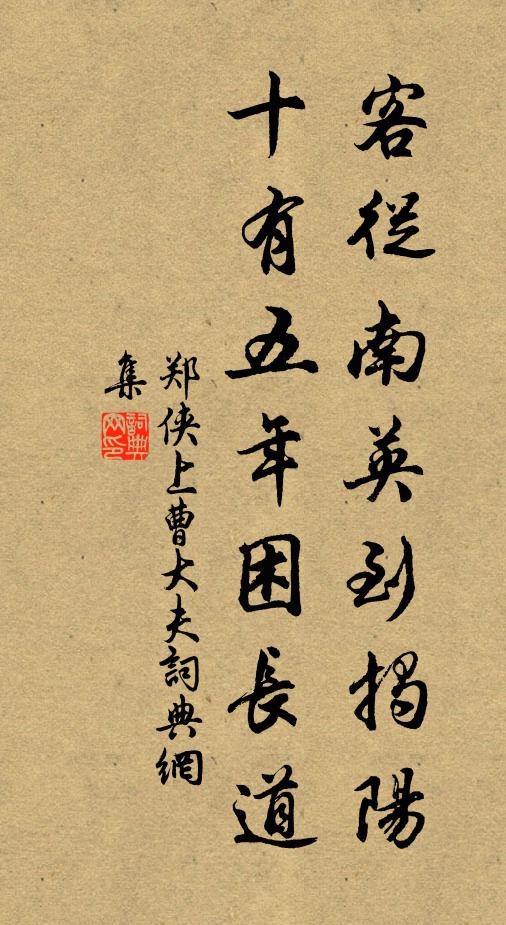 客從南英到揭陽
十有五年困長道
郑侠上曹大夫詞典網
集
詞典網印